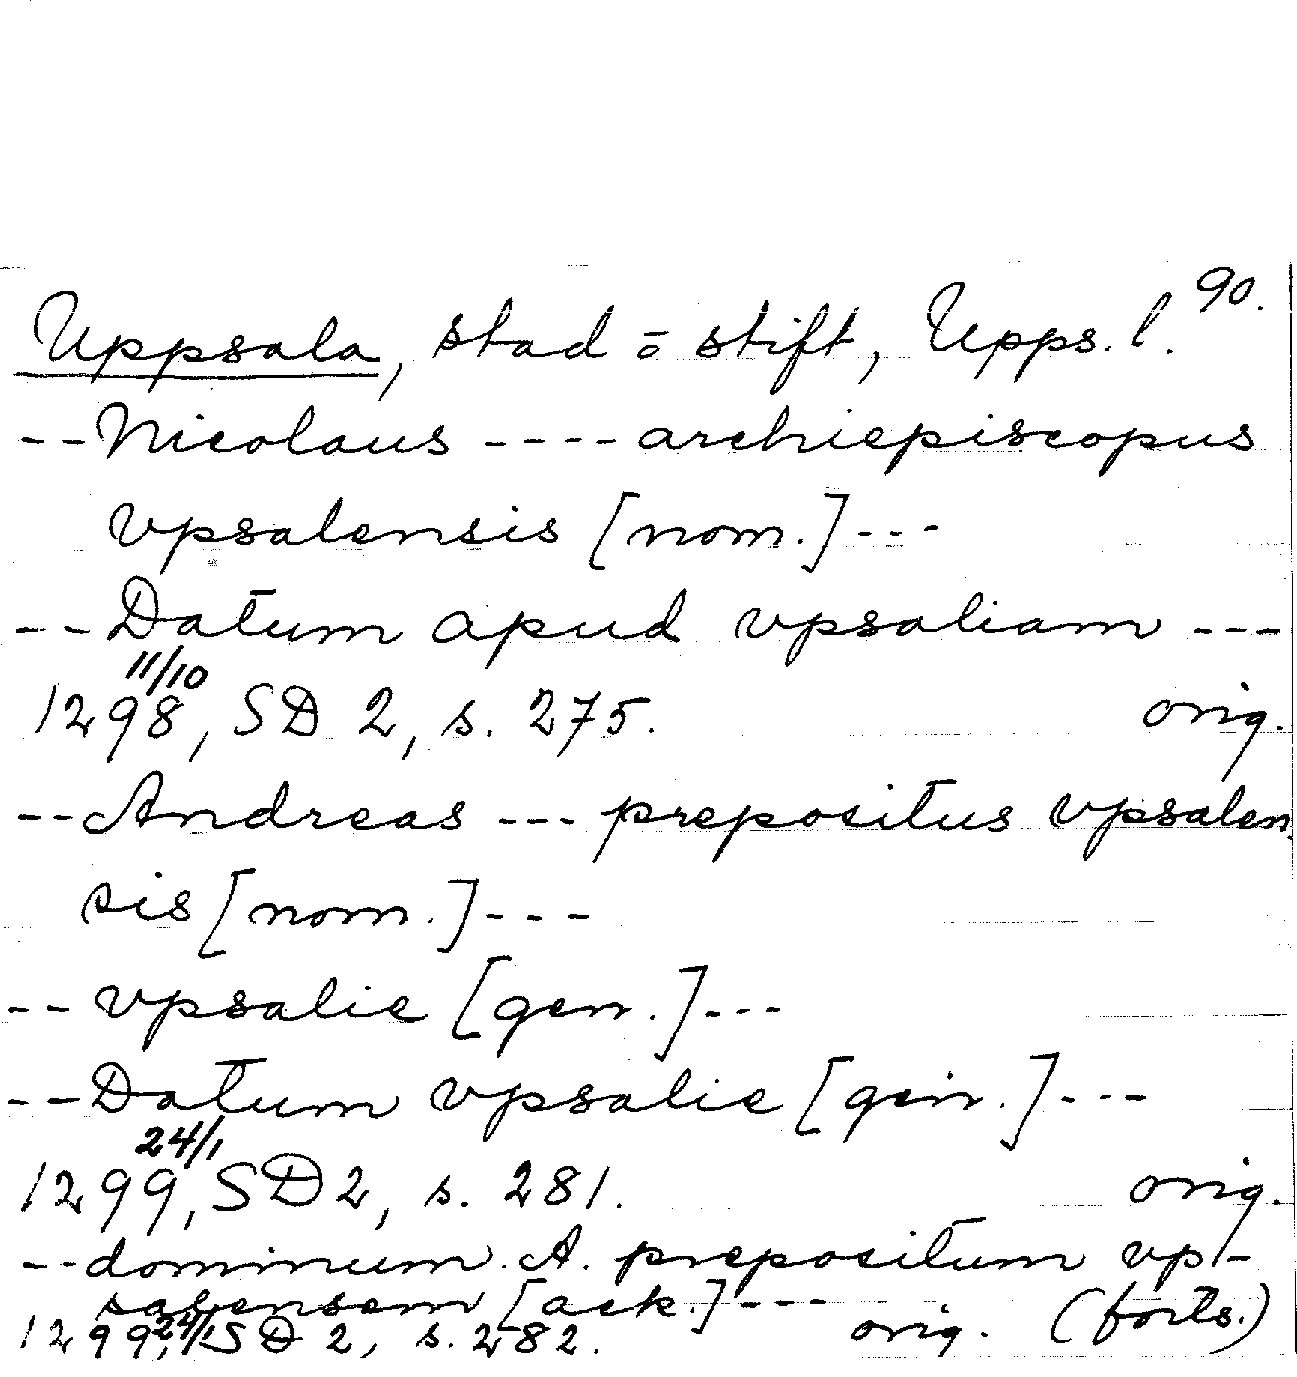 90.
Uppsala, stad o. stift, Upps. l.
--Nicolaus ---- archiepiscopus
vpsalensis [nom.]---
--Datum apud vpsaliam ---
11/10
1298, SD 2, s. 275. orig.
--Andreas --- prepositus vpsalen
sis [nom.]---
--vpsalie [gen.]---
--Datum vpsalie [gen.]---
24/1
1299, SD 2, s. 281. orig.
--dominum .A. prepositum vp-
salensem [ack.]---- (forts.)
24/1
1299, SD 2, s. 282. orig.